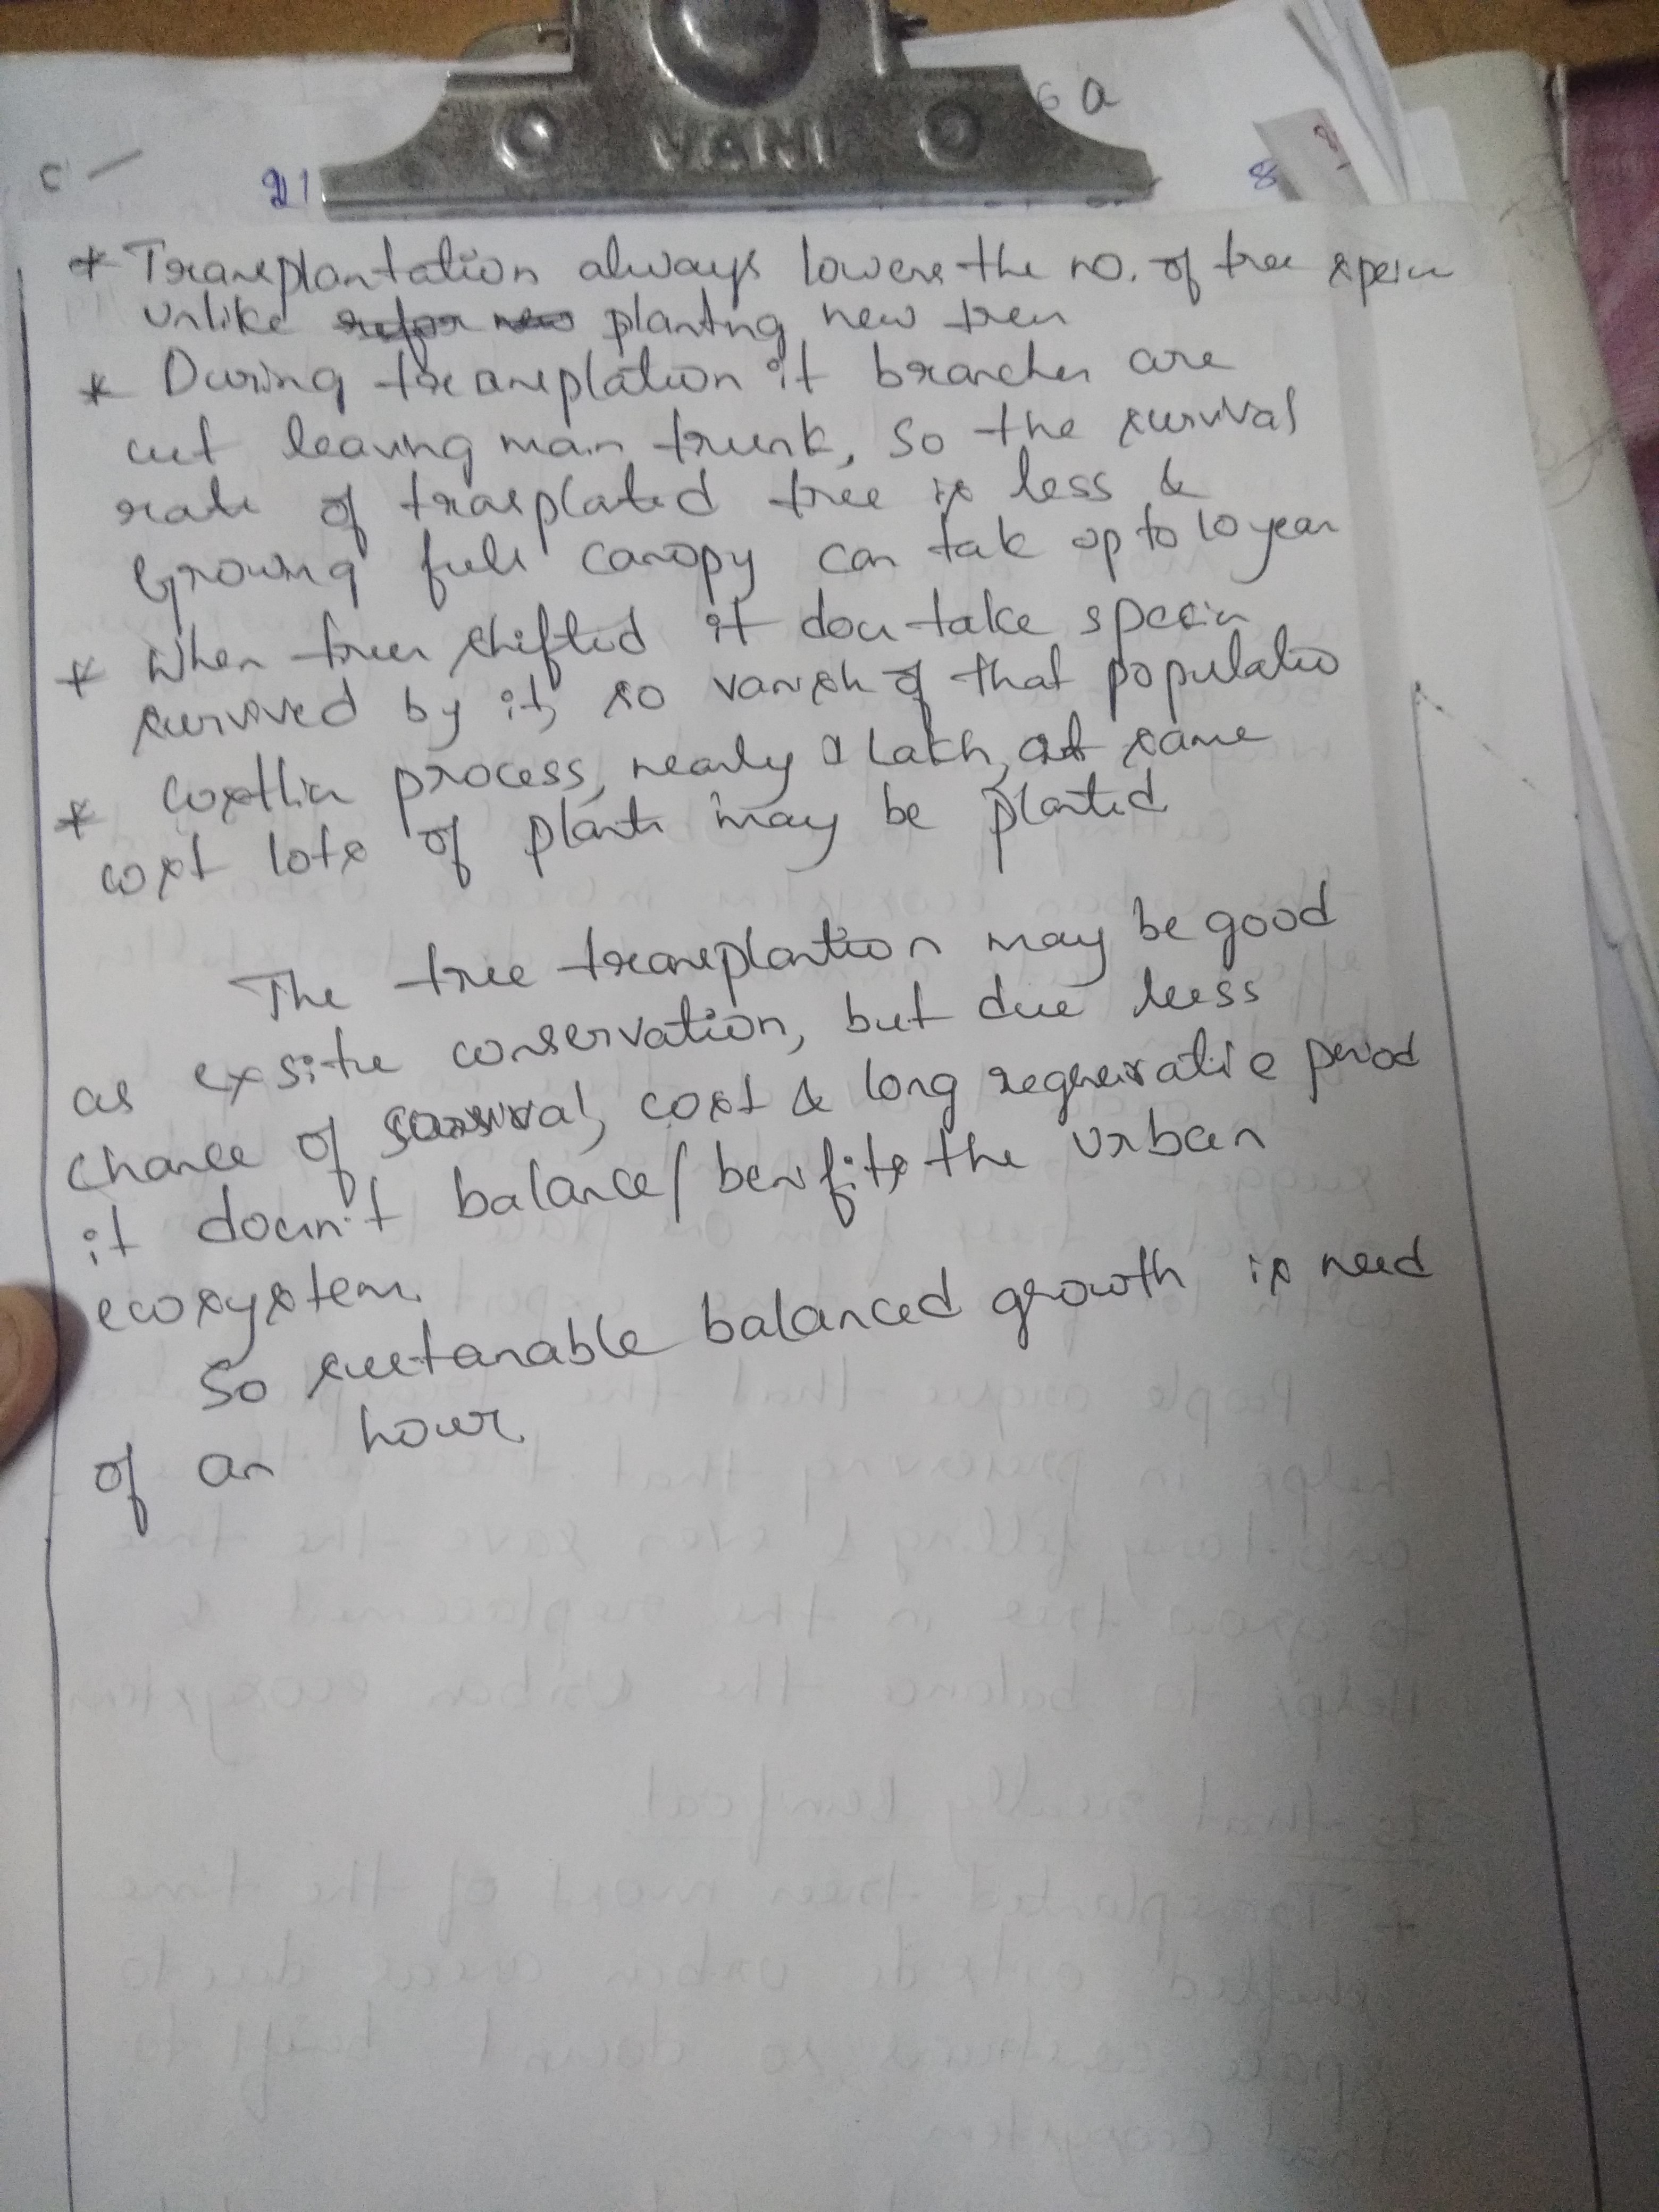 VANI
G a
c -
21
8
* Transplantation always lowers the no. of tree specie
unlike planting new trees
* During transplation it branches are
cut leaving main trunk, So the survival
rate of trasplated tree is less &
Growing full canopy can take up to 10 year
* When trees shifted it does take species
survived by it, so vanish of that populatio
* Costlier process, nearly 1 lakh, at same
cost lots of plants may be planted
The tree transplantion may be good
as exsitu conservation, but due less
chance of survival, cost & long regenerative period
it doesn't balance/benifits the urban
ecosystem.
So sustanable balanced growth is need
of an hour.